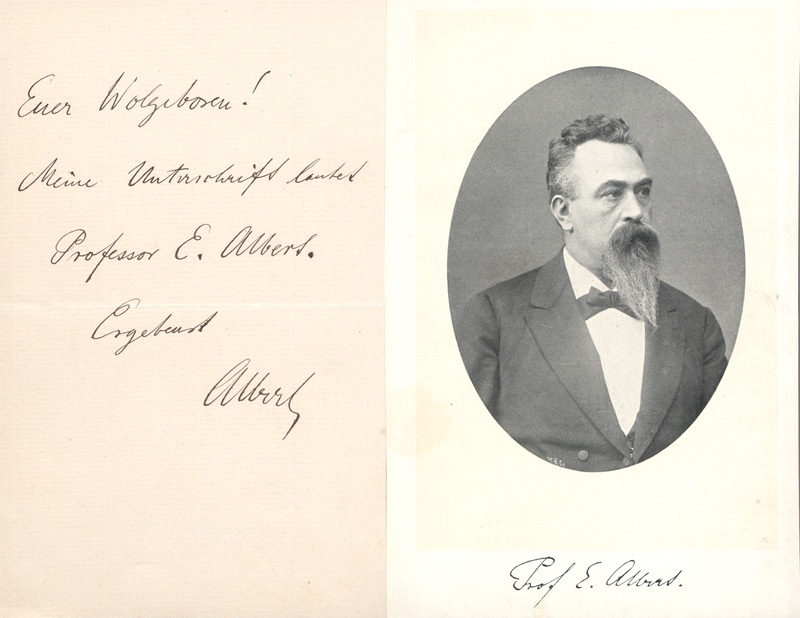 Euer Wolgeboren!
Meine Unterschrift lautet
Professor E. Albert.
Ergebenst
Albert
MZG
Prof E. Albert.